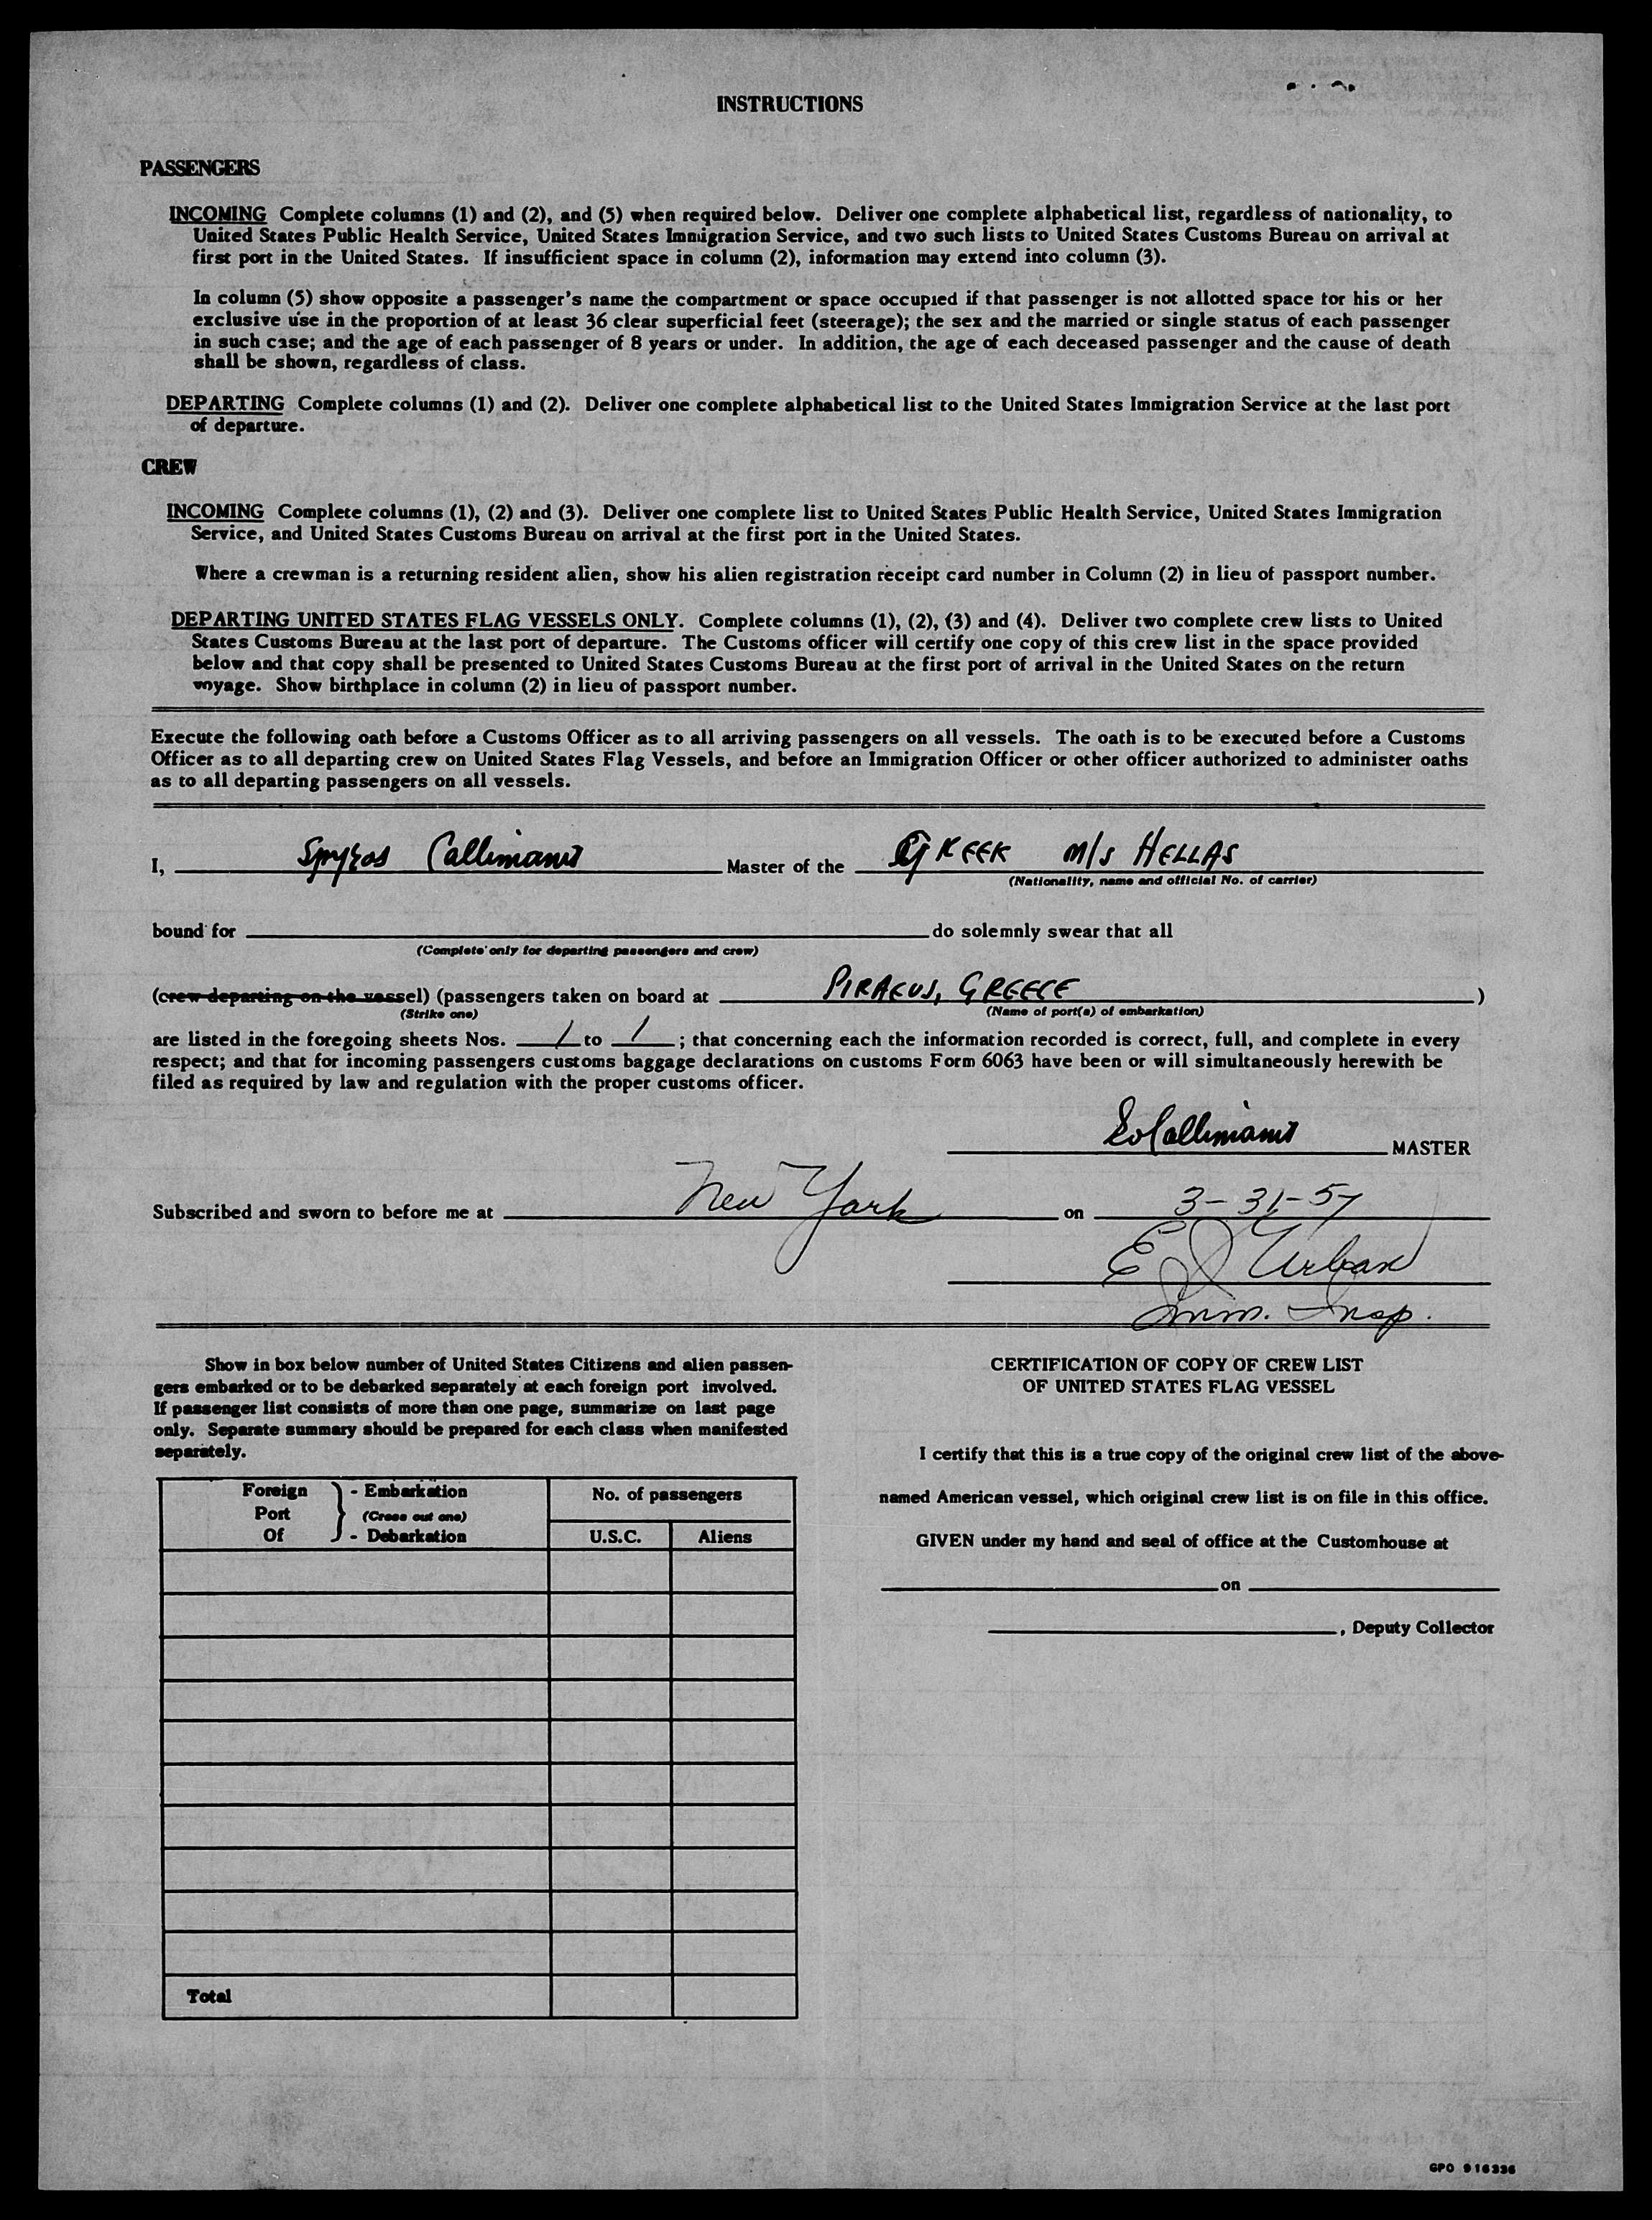 INSTRUCTIONS
PASSENGERS
INCOMING Complete columns (1) and (2), and (5) when required below. Deliver one complete alphabetical list, regardless of nationality, to
United States Public Health Service, United States Immigration Service, and two such lists to United States Customs Bureau on arrival at
first port in the United States. If insufficient space in column (2), information may extend into column (3).
In column (5) show opposite a passenger's name the compartment or space occupied if that passenger is not allotted space for his or her
exclusive use in the proportion of at least 36 clear superficial feet (steerage); the sex and the married or single status of each passenger
in such case; and the age of each passenger of 8 years or under. In addition, the age of each deceased passenger and the cause of death
shall be shown, regardless of class.
DEPARTING Complete columns (1) and (2). Deliver one complete alphabetical list to the United States Immigration Service at the last port
of departure.
CREW
INCOMING Complete columns (1), (2) and (3). Deliver one complete list to United States Public Health Service, United States Immigration
Service, and United States Customs Bureau on arrival at the first port in the United States.
Where a crewman is a returning resident alien, show his alien registration receipt card number in Column (2) in lieu of passport number.
DEPARTING UNITED STATES FLAG VESSELS ONLY. Complete columns (1), (2), (3) and (4). Deliver two complete crew lists to United
States Customs Bureau at the last port of departure. The Customs officer will certify one copy of this crew list in the space provided
below and that copy shall be presented to United States Customs Bureau at the first port of arrival in the United States on the return
voyage. Show birthplace in column (2) in lieu of passport number.
Execute the following oath before a Customs Officer as to all arriving passengers on all vessels. The oath is to be executed before a Customs
Officer as to all departing crew on United States Flag Vessels, and before an Immigration Officer or other officer authorized to administer oaths
as to all departing passengers on all vessels.
I, Spyros Callimanis Master of the GREEK M/S HELLAS
(Nationality, name and official No. of carrier)
bound for do solemnly swear that all
(Complete only for departing passengers and crew)
(crew departing on the vessel) (passengers taken on board at PIRAEUS, GREECE )
(Strike one) (Name of port(s) of embarkation)
are listed in the foregoing sheets Nos. 1 to 1 ; that concerning each the information recorded is correct, full, and complete in every
respect; and that for incoming passengers customs baggage declarations on customs Form 6063 have been or will simultaneously herewith be
filed as required by law and regulation with the proper customs officer.
Callimanis MASTER
Subscribed and sworn to before me at New York on 3-31-57
E J Urban
Imm. Insp.
Show in box below number of United States Citizens and alien passen-
gers embarked or to be debarked separately at each foreign port involved.
If passenger list consists of more than one page, summarize on last page
only. Separate summary should be prepared for each class when manifested
separately.
Foreign Port Of - Embarkation
(Cross out one)
- Debarkation
No. of passengers
U.S.C. Aliens
Total
CERTIFICATION OF COPY OF CREW LIST
OF UNITED STATES FLAG VESSEL
I certify that this is a true copy of the original crew list of the above-
named American vessel, which original crew list is on file in this office.
GIVEN under my hand and seal of office at the Customhouse at
on
, Deputy Collector
GPO 916336